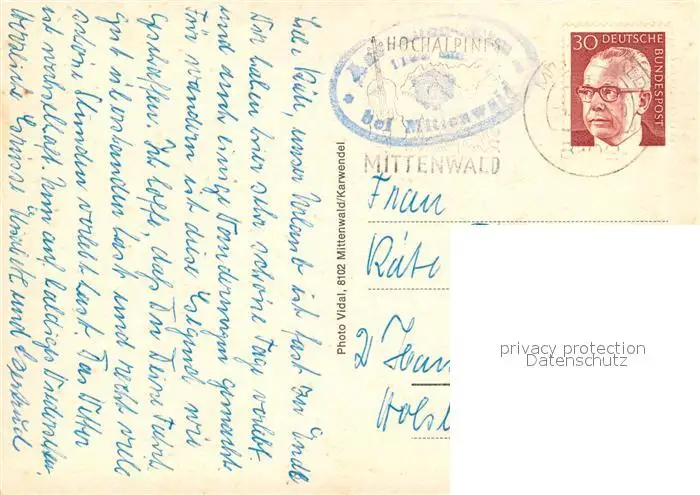 Liebe Käte, unser Urlaub ist fast zu Ende
Wir haben hier sehr schöne Tage verlebt
und auch einige Wanderungen gemacht.
Für wandern ist diese Gegend wie
geschaffen. Ich hoffe, daß Du Deine Fahrt
gut überstanden hast und recht viele
schöne Stunden verlebt hast. Das Wetter
ist wechselhaft. Nun auf baldiges Wiedersehen
Herzliche Grüsse und
Photo Vidal, 8102 Mittenwald/Karwendel
HOCHALPINES
bei Mittenwald
MITTENWALD
30 DEUTSCHE
BUNDESPOST
Frau
Käte
2 Ham
Holst
privacy protection
Datenschutz